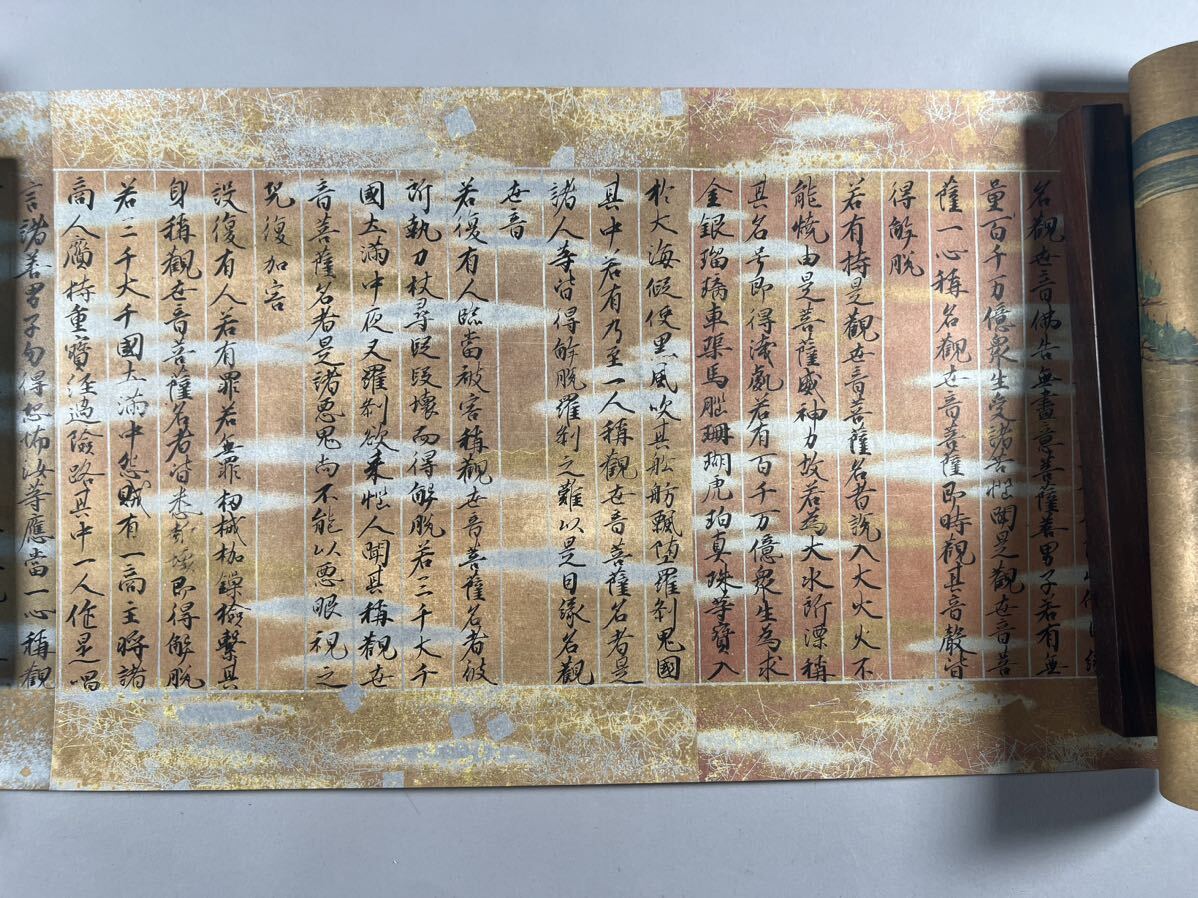 名觀世音佛告無盡意菩薩善男子若有無
量百千万億衆生受諸苦惱聞是觀世音菩
薩一心稱名觀世音菩薩即時觀其音聲皆
得解脫
若有持是觀世音菩薩名者設入大火火不
能燒由是菩薩威神力故若為大水所漂稱
其名号即得淺處若有百千万億衆生為求
金銀瑠璃車渠馬瑙珊瑚虎珀真珠等寶入
於大海假使黒風吹其舩舫飄堕羅刹鬼國
其中若有乃至一人稱觀世音菩薩名者是
諸人等皆得解脫羅刹之難以是因緣名觀
世音
若復有人臨當被害稱觀世音菩薩名者彼
所執刀杖尋段段壞而得解脫若三千大千
國土滿中夜叉羅刹欲來惱人聞其稱觀世
音菩薩名者是諸惡鬼尚不能以惡眼視之
况復加害
設復有人若有罪若無罪杻械枷鏁檢繫其
身稱觀世音菩薩名者皆悉即得解脫
若三千大千國土滿中怨賊有一商主將諸
商人齎持重寶經過險路其中一人作是唱
言諸善男子勿得恐怖汝等應當一心稱觀